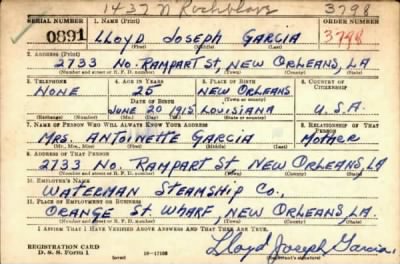 1437 N Rocheblave 3798
SERIAL NUMBER 1. NAME (Print) ORDER NUMBER
0891 LLOYD JOSEPH GARCIA 3798
(First) (Middle) (Last)
2. ADDRESS (Print)
2733 NO. RAMPART ST, NEW ORLEANS, LA
(Number and street or R. F. D. number) (Town) (County) (State)
3. TELEPHONE 4. AGE IN YEARS 5. PLACE OF BIRTH 6. COUNTRY OF CITIZENSHIP
NONE 25 NEW ORLEANS
DATE OF BIRTH (Town or county)
JUNE 20 1915 LOUISIANA U.S.A.
(Exchange) (Number) (Mo.) (Day) (Yr.) (State or country)
7. NAME OF PERSON WHO WILL ALWAYS KNOW YOUR ADDRESS 8. RELATIONSHIP OF THAT PERSON
MRS. ANTOINETTE GARCIA MOTHER
(Mr., Mrs., Miss) (First) (Middle) (Last)
9. ADDRESS OF THAT PERSON
2733 NO. RAMPART ST, NEW ORLEANS, LA
(Number and street or R. F. D. number) (Town) (County) (State)
10. EMPLOYER'S NAME
WATERMAN STEAMSHIP CO.,
11. PLACE OF EMPLOYMENT OR BUSINESS
ORANGE ST WHARF, NEW ORLEANS, LA.
(Number and street or R. F. D. number) (Town) (County) (State)
I AFFIRM THAT I HAVE VERIFIED ABOVE ANSWERS AND THAT THEY ARE TRUE.
REGISTRATION CARD
D. S. S. Form 1 (over) 16-17105 Lloyd Joseph Garcia